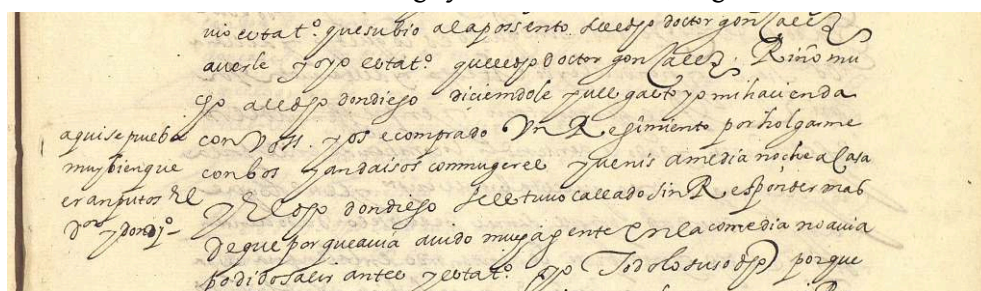 vio esta tº. que subio al aposento del dho doctor gonçalez
averle y oyo esta tº que el dho doctor gonçalez Riño mu
cho al dho don diego diciendole que gasto yo mi hacienda
con vos. y os e comprado Un Regimiento por holgarme
con bos y andaisos con mugeres y venis a media noche a Casa
y El dho don diego se estuvo callado sin Responder mas
de que por que avia avido mucha gente en la comedia no avia
podido salir antes y esta tº oyo Todo lo suso dho porque
aqui se prueba
muy bien que
eran putos El
Dor y don diº